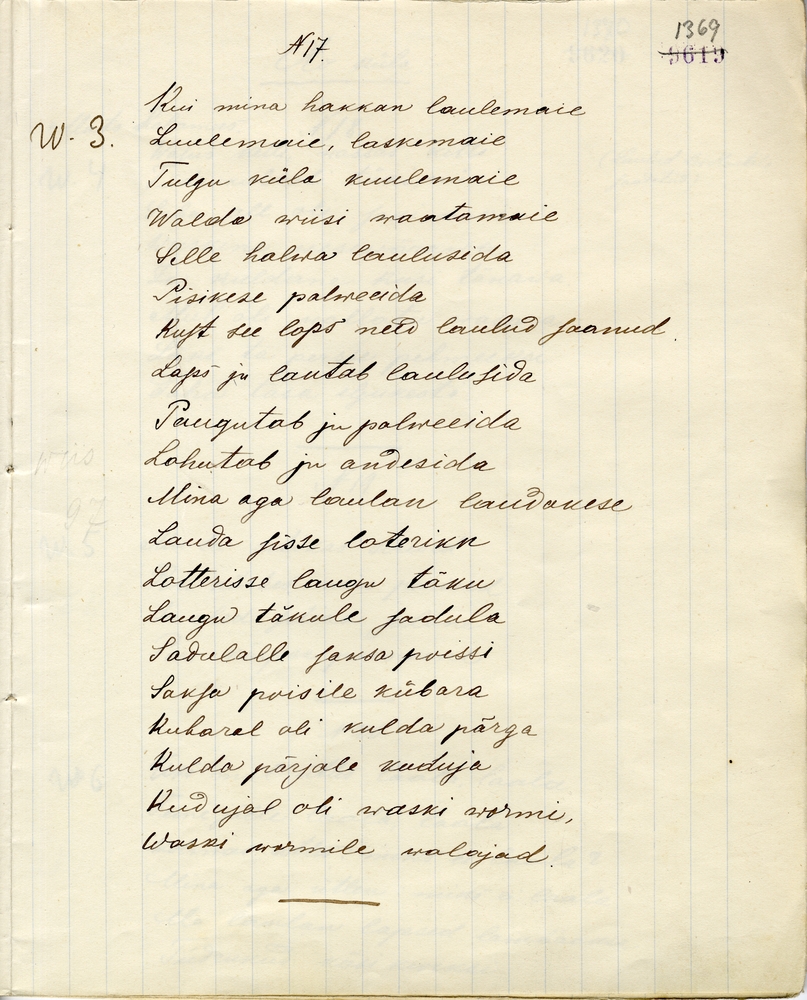 N 17.
1369
9619
W. 3.
Kui mina hakkan laulemaie
Luulemaie, laskemaie
Tulgu küla kuulemaie
Walda wiisi waatamaie
Selle halwa laulusida
Pisikese palweeida
Kust see laps need laulud saanud.
Laps ju lautab laulusida
Paugutab ju palweeida
Lahutab ju andesida
Mina aga laulan laudakese
Lauda sisse laterikn
Lotterisse laugu täku
Laugu täkule sadula
Sadulalle saksa poissi
Saksa poisile kübara
Kubaral oli kulda pärga
Kulda pärjale kuduja
Kudujal oli waski wormi,
Waski wormile walajad.